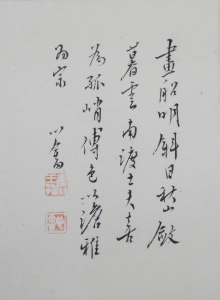 畫船明斜日秋山斂
暮雲南渡士夫喜
為孤峭傅色以澹雅
為宗
心畬